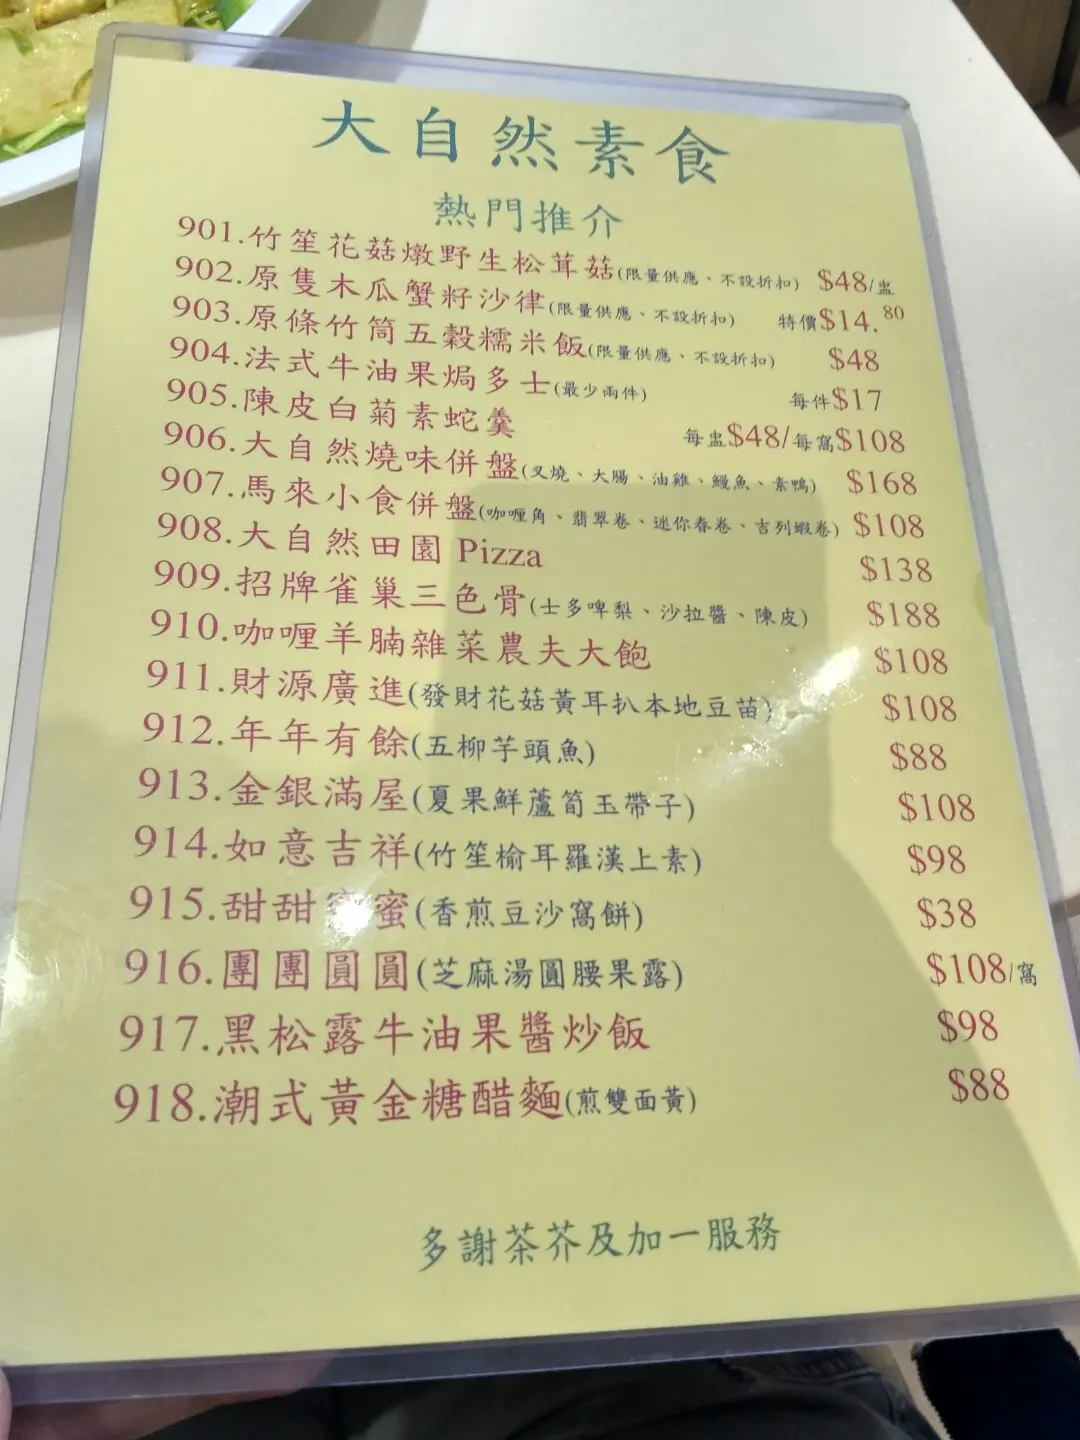 大自然素食
熱門推介
901.竹笙花菇燉野生松茸菇(限量供應、不設折扣) $48/盅
902.原隻木瓜蟹籽沙律(限量供應、不設折扣) 特價$14.80
903.原條竹筒五穀糯米飯(限量供應、不設折扣) $48
904.法式牛油果焗多士(最少兩件) 每件$17
905.陳皮白菊素蛇羹 每盅$48/每窩$108
906.大自然燒味併盤(叉燒、大腸、油雞、鰻魚、素鴨) $168
907.馬來小食併盤(咖喱角、翡翠卷、迷你春卷、吉列蝦卷) $108
908.大自然田園 Pizza $138
909.招牌雀巢三色骨(士多啤梨、沙拉醬、陳皮) $188
910.咖喱羊腩雜菜農夫大飽 $108
911.財源廣進(發財花菇黃耳扒本地豆苗) $108
912.年年有餘(五柳芋頭魚) $88
913.金銀滿屋(夏果鮮蘆筍玉帶子) $108
914.如意吉祥(竹笙榆耳羅漢上素) $98
915.甜甜蜜蜜(香煎豆沙窩餅) $38
916.團團圓圓(芝麻湯圓腰果露) $108/窩
917.黑松露牛油果醬炒飯 $98
918.潮式黃金糖醋麵(煎雙面黃) $88
多謝茶芥及加一服務